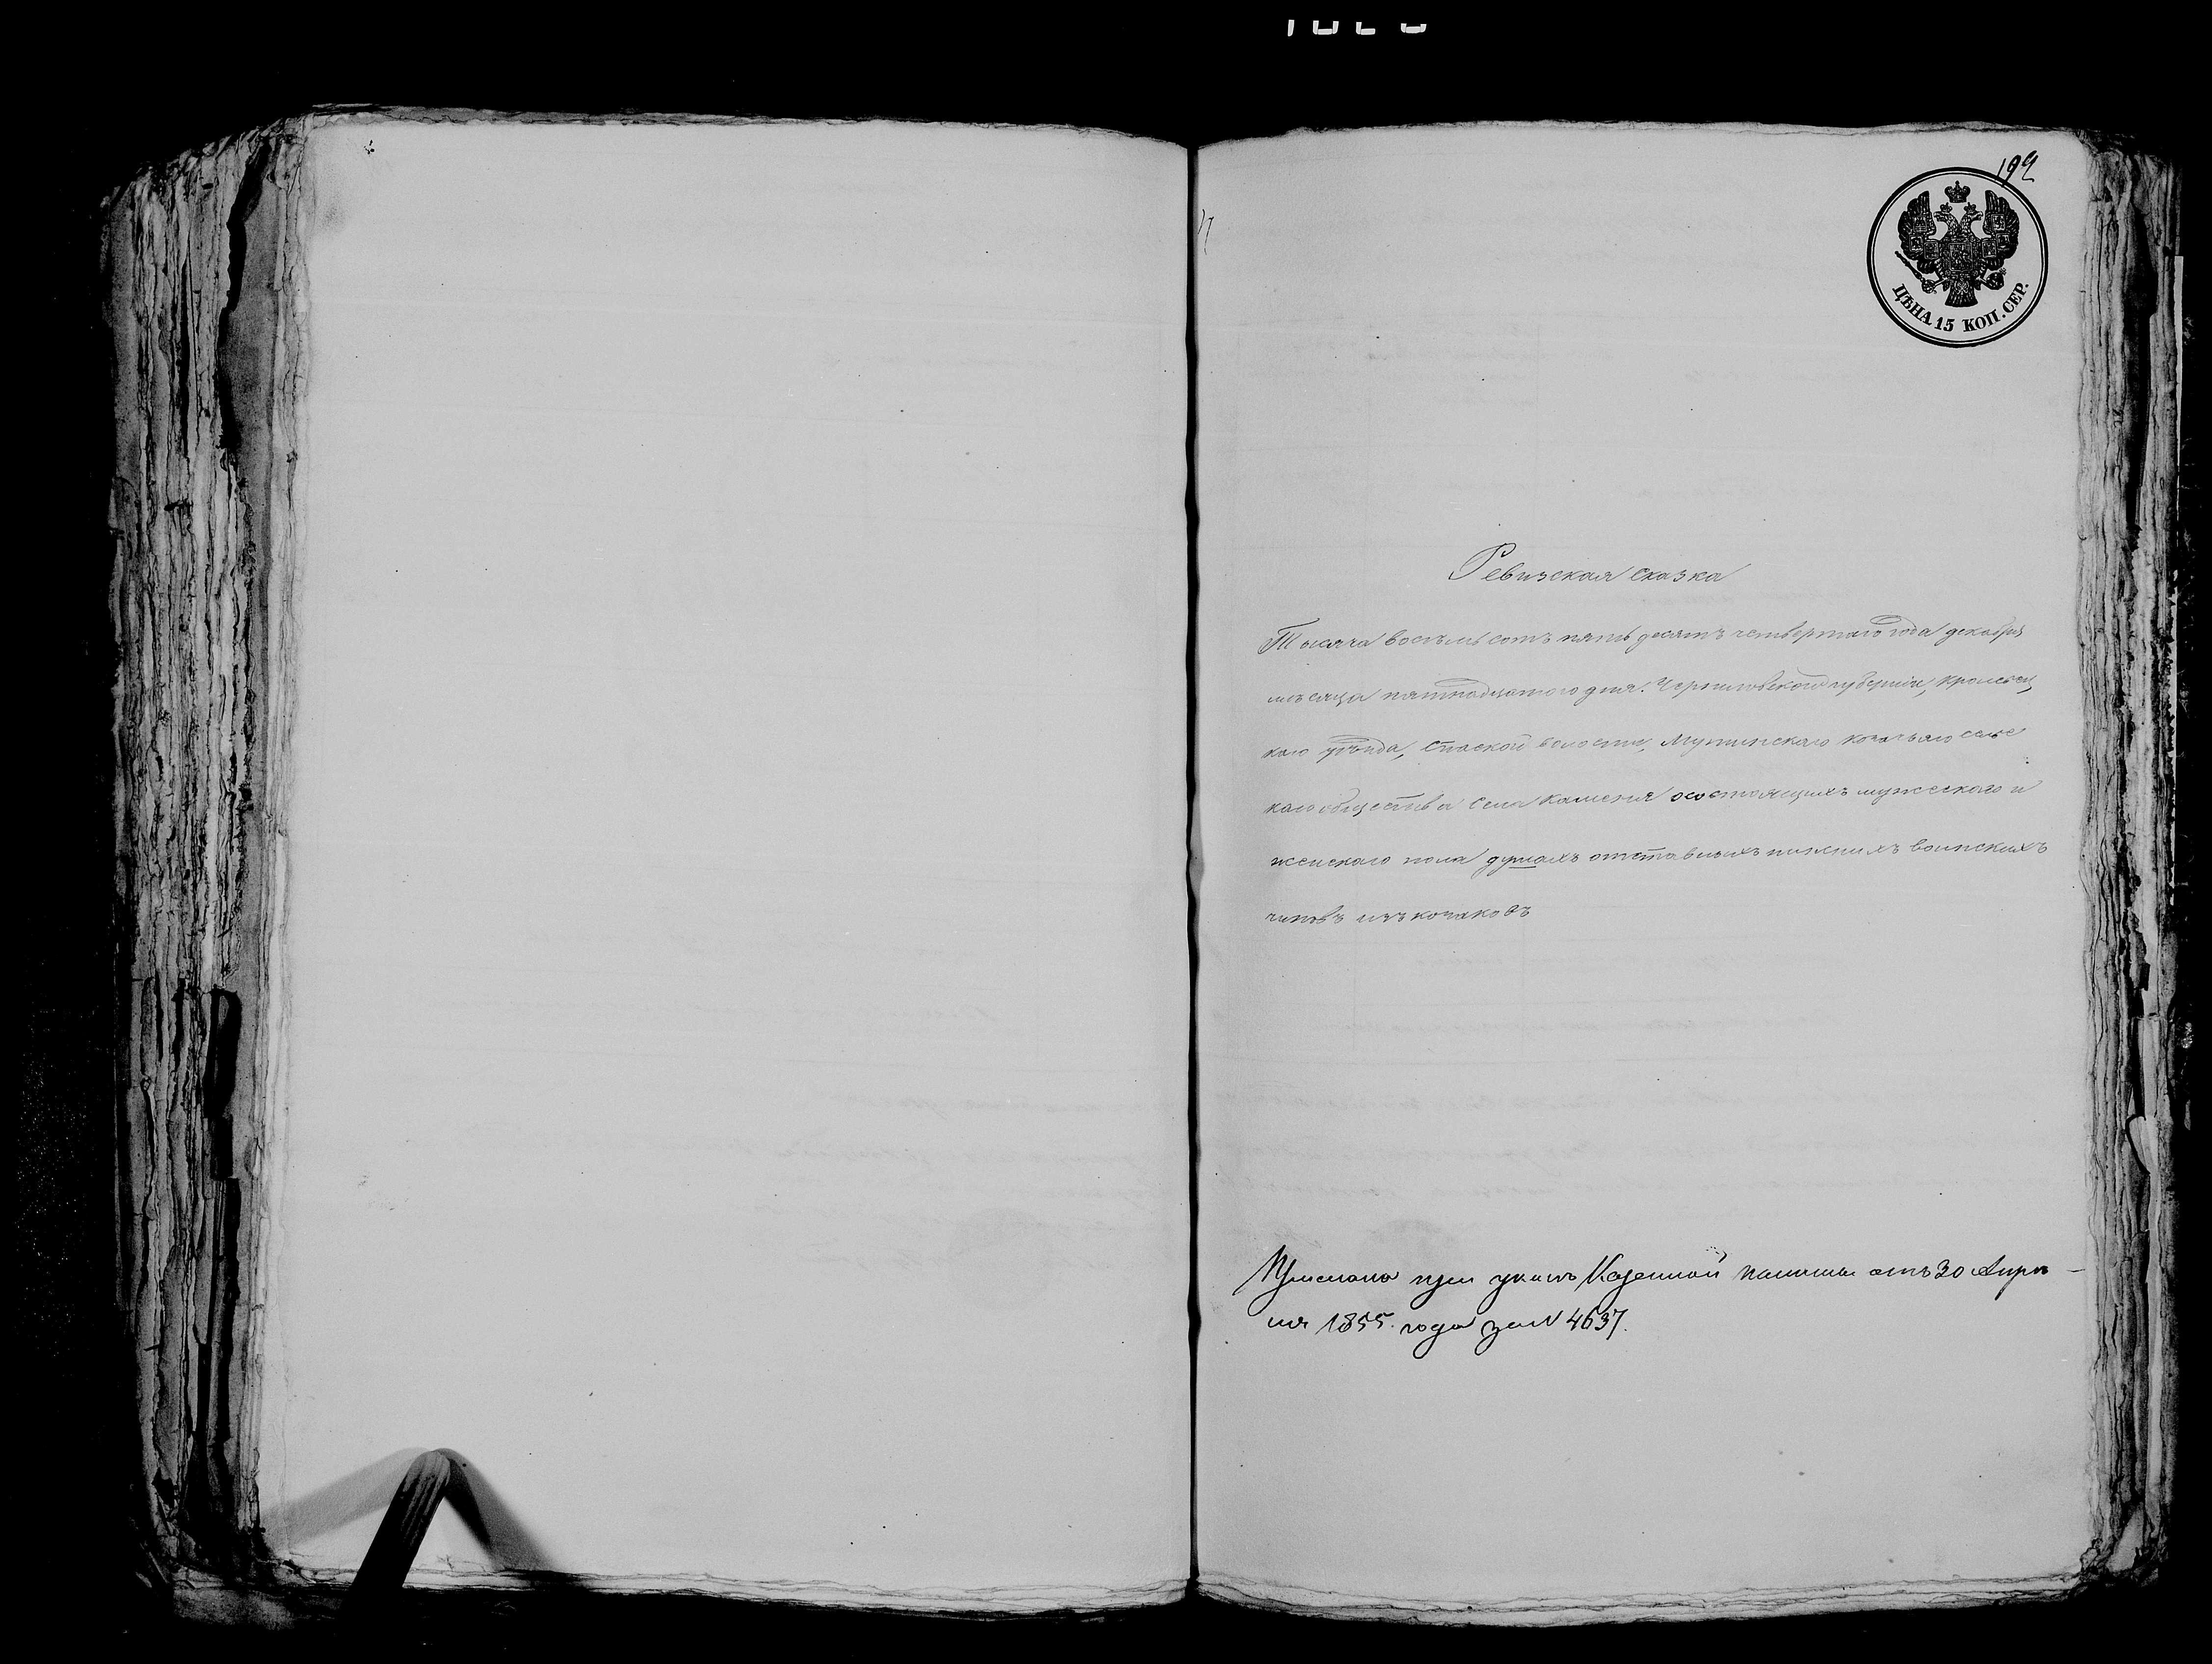 192
ЦѢНА 15 КОП. СЕР.
Ревизская сказка
Тысяча восемь сотъ пять десятъ четвертаго года декабря
мѣсяца пятнадцатого дня. Черниговской губерніи, Кролевец
каго уѣзда, Спаской волости, Мутинскаго козачьяго сельс
каго общества Села Каменя о состоящихъ мужескаго и
женскаго пола душахъ отставныхъ нижнихъ воинскихъ
чиновъ изъ козаковъ
Прислана при указѣ Казенной палаты отъ 30 Апрѣ
ля 1855 года за N 4637.